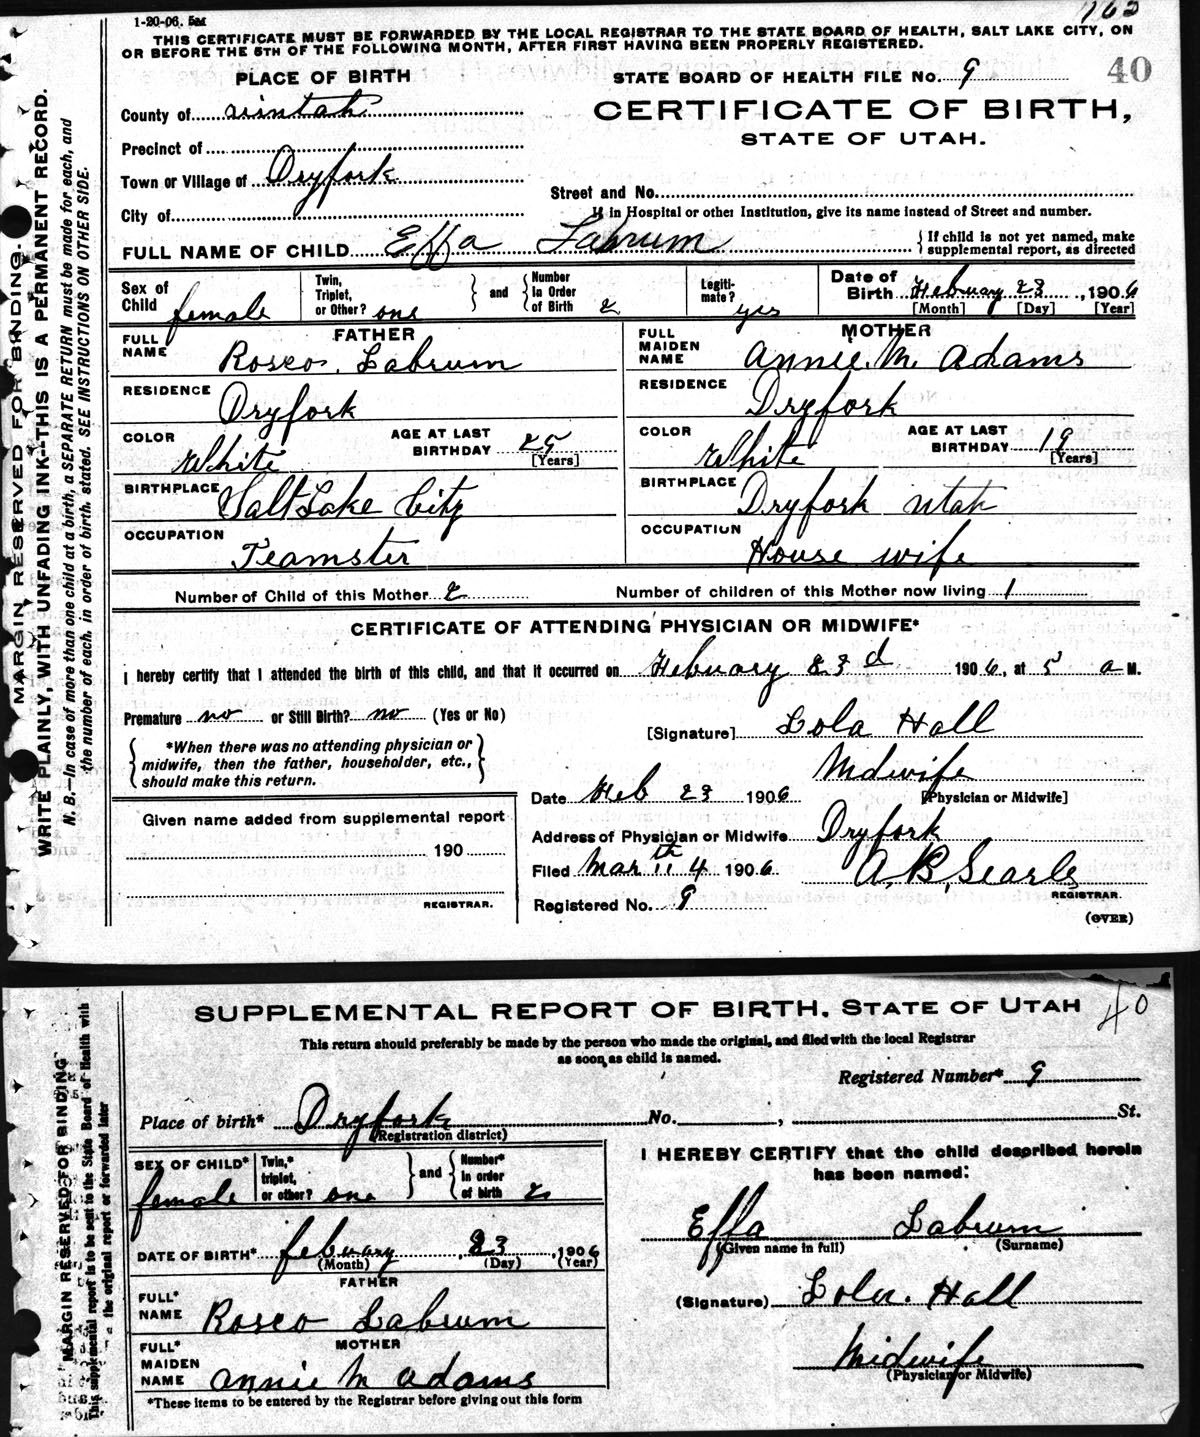 1-20-06. 5M
THIS CERTIFICATE MUST BE FORWARDED BY THE LOCAL REGISTRAR TO THE STATE BOARD OF HEALTH, SALT LAKE CITY, ON
OR BEFORE THE 5TH OF THE FOLLOWING MONTH, AFTER FIRST HAVING BEEN PROPERLY REGISTERED.
PLACE OF BIRTH
STATE BOARD OF HEALTH FILE No. 9 40
County of uintah
CERTIFICATE OF BIRTH,
STATE OF UTAH.
Precinct of
Town or Village of Dryfork
Street and No.
City of
If in Hospital or other Institution, give its name instead of Street and number.
FULL NAME OF CHILD Effa Labrum { If child is not yet named, make
supplemental report, as directed
Sex of Child female Twin, Triplet, or Other? one } and { Number in Order of Birth 2 Legiti-mate? yes Date of Birth Febuary 23, 1906
[Month] [Day] [Year]
FATHER MOTHER
FULL NAME Rosco. Labrum FULL MAIDEN NAME Annie. M. Adams
RESIDENCE Dryfork RESIDENCE Dryfork
COLOR White AGE AT LAST BIRTHDAY 25 [Years] COLOR White AGE AT LAST BIRTHDAY 19 [Years]
BIRTHPLACE Salt Lake City BIRTHPLACE Dryfork utah
OCCUPATION Teamster OCCUPATION House wife
Number of Child of this Mother 2 Number of children of this Mother now living 1
CERTIFICATE OF ATTENDING PHYSICIAN OR MIDWIFE*
I hereby certify that I attended the birth of this child, and that it occurred on Febuary 23d 1906, at 5 a M.
Premature no or Still Birth? no (Yes or No)
[Signature] Lola Hall
{ *When there was no attending physician or
midwife, then the father, householder, etc.,
should make this return. }
Midwife
[Physician or Midwife]
Date Feb 23 1906
Given name added from supplemental report
190
REGISTRAR.
Address of Physician or Midwife Dryfork
Filed Mar 4th 1906 A. B. Searle
REGISTRAR.
Registered No. 9
(OVER)
MARGIN RESERVED FOR BINDING.
WRITE PLAINLY, WITH UNFADING INK--THIS IS A PERMANENT RECORD.
N. B.—In case of more than one child at a birth, a SEPARATE RETURN must be made for each, and
the number of each, in order of birth, stated. SEE INSTRUCTIONS ON OTHER SIDE.
SUPPLEMENTAL REPORT OF BIRTH, STATE OF UTAH 40
This return should preferably be made by the person who made the original, and filed with the local Registrar
as soon as child is named.
Registered Number* 9
Place of birth* Dryfork No. , St.
(Registration district)
SEX OF CHILD* female Twin,* triplet, or other? one } and { Number* in order of birth 2
I HEREBY CERTIFY that the child described herein
has been named:
DATE OF BIRTH* febuary, 23, 1906
(Month) (Day) (Year)
Effa Labrum
(Given name in full) (Surname)
FATHER
FULL* NAME Rosco Labrum
(Signature) Lola. Hall
MOTHER
FULL* MAIDEN NAME annie M adams
Midwife
(Physician or Midwife)
*These items to be entered by the Registrar before giving out this form
MARGIN RESERVED FOR BINDING
This supplemental report is to be sent to the State Board of Health with
the original report or forwarded later